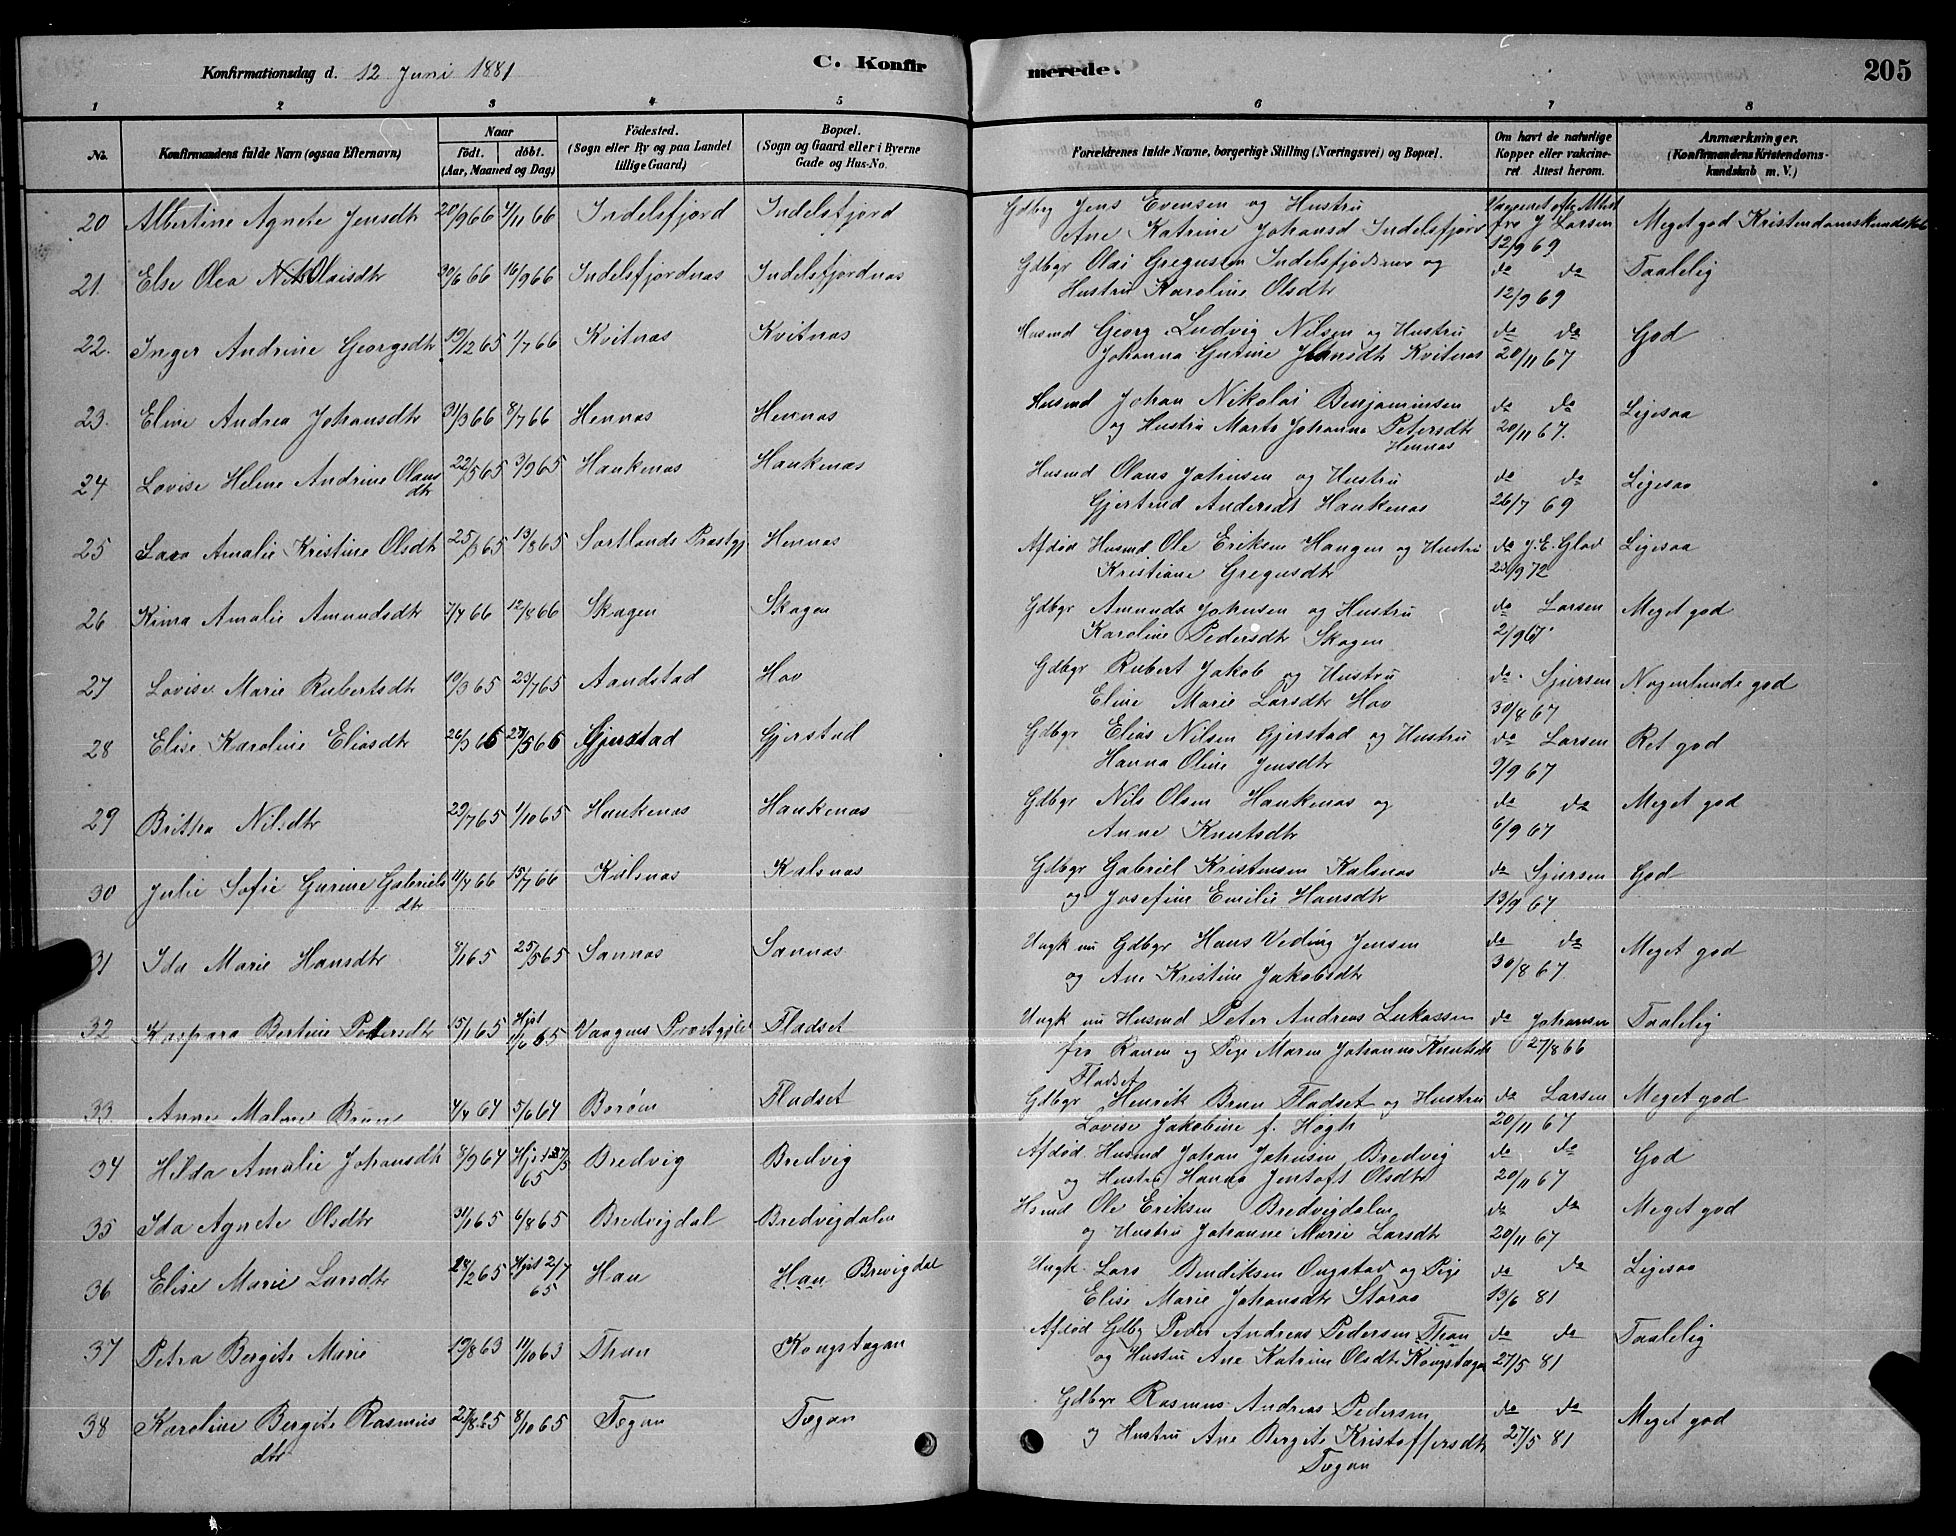 Konfirmationsdag d. 12 Juni 1881
C. Konfir
merede.
205
1 2 3 4 5 6 7 8
No.
Konfirmandens fulde Navn (ogsaa Efternavn)
Naar
født. døbt.
(Aar, Maaned og Dag)
Födested.
(Sogn eller By og paa Landet
tillige Gaard)
Bopæl.
(Sogn og Gaard eller i Byerne
Gade og Hus-No.
Forældrenes fulde Navne, borgerlige Stilling (Næringsvei) og Bopæl.
Om havt de naturlige
Kopper eller vakcine-
ret. Attest herom.
Anmærkninger.
(Konfirmandens Kristendoms-
kundskab m. V.)
20 Albertine Agnete Jensdtr 20/9 66 4/11 66 Indelsfjord Indelsfjord Gdbrg Jens Evensen og Hustru
Ane Katrine Johansd Indelsfjord fra J Larsen 12/9 69 Meget god Kristendomskundskab
21. Else Olea Olaisdtr 20/6 66 16/9 66 Indelsfjordnas Indelsfjordnas Gdbgr Olai Gregusen Indelsfjordnas og
Hustru Karoline Olsdtr do do 12/9 69 Taalelig
22. Inger Andrine Georgsdtr 19/12 65 1/7 66 Kvitnas Kvitnas Husmd Georg Ludvig Nilsen og Hustru
Johanna Gurine Hansdtr Kvitnas do do 20/11 67 God
23. Eline Andrea Johansdtr 31/3 66 8/7 66 Hennas Hennas Husmd Johan Nikolai Benjaminsen
og Hustru Marte Johanna Petersdtr
Hennas do do 20/11 67. Ligesaa
24 Lovise Helene Andrine Olaus
dtr 22/5 65 3/9 65 Haukenas Haukenas Husmd Olaus Johnsen og Hustru
Gjertrud Andersdt Haukenas do do 26/7 69 Ligesaa
25 Lara Amalie Kristine Olsdtr 25/3 65 13/8 65 Sortlands Præstgj. Hennas Afdød Husmd Ole Eriksen Haugen og Hustru
Kristiane Gregusdtr do J. E. Glad 23/9 72 Ligesaa
26 Kima Amalie Amundsdtr 7/4 66 12/8 66 Skagen Skagen Gdbgr Amunds Johnsen og Hustru
Karoline Pedersdtr Skagen do Larsen 2/9 67 Meget god
27 Lovise Marie Rubertsdtr 19/3 65 23/7 65 Aandstad Hov Gdbgr Rubert Jakob og Hustru
Eline Marie Larsdtr Hov do Sjursen 30/8 67 Nogenlunde god
28 Elise Karoline Eliasdtr 26/3 66 27/5 66 Gjerstad Gjerstad Gdbgr Elias Nilsen Gjerstad og Hustru
Hanna Oline Jensdtr do Larsen 9/9 67 Ret god
29 Britha Nilsdtr 29/7 65 1/10 65 Haukenas Haukenas Gdbgr Nils Olsen Haukenas og
Anne Knutsdtr do do 6/9 67 Meget god
30 Julie Sofie Gurine Gabriels
dtr 11/4 66 15/7 66 Kulsnas Kulsnas Gdbgr Gabriel Kristensen Kalsnas
og Josefine Emilie Hansdtr do Sjursen 13/9 67 God
31 Ida Marie Hansdtr 8/1 65 25/5 65 Sannas Sannas Ungk nu Gdbgr Hans Veding Jensen
og Ane Kristine Jakobsdtr do do 30/8 67 Meget god
32 Kaspara Bertine Petersdtr 15/1 65 Hjst 11/6 65 Vaagens Præstgjeld Fladset Ungk nu Husmd Peter Andreas Lukassen
fra Raven og Pige Maren Johanna Knutsdt
Fladset do Johansen 27/8 66 Taalelig
33 Anne Malene Brun 4/4 64 5/6 64 Borøen Fladset Gdbgr Henrik Brun Fladset og Hustru
Lovise Jakobine f. Høgh do Larsen 20/11 67 Meget god
34 Hilda Amalie Johansdtr 8/9 64 65 Bredvig Bredvig Afdød Husmd Johan Johnsen Bredvig
og Hustru Hanna Jentoft Olsdtr do do 20/11 67 God
35 Ida Agnete Olsdtr 31/1 65 6/8 65 Bredvigdal Bredvigdalen Husmd Ole Eriksen Bredvigdalen
og Hustru Johanne Marie Larsdtr do do 20/11 67 Meget god
36 Elise Marie Larsdtr 28/2 65 Hjst 2/7 65 Hau Hau Brevigdal Ungk. Lars Bendiksen Ongstad og Pige
Elise Marie Johansdtr Staraa do do 13/6 81 Ligesaa
37 Petra Bergite Marie 19/8 63 11/10 63 Than Kongstegan Afdød Gdbg Peder Andreas Pedersen Than
og Hustru Ane Katrine Olsdtr Kongstegan do do 27/5 81 Taalelig
38 Karoline Bergite Rasmus
dtr 27/8 65 8/10 65 Tegan Tegan Gdbgr Rasmus Andreas Pedersen
og Hustru Ane Bergite Kristoffersdtr
Tegan do do 27/5 81 Meget god